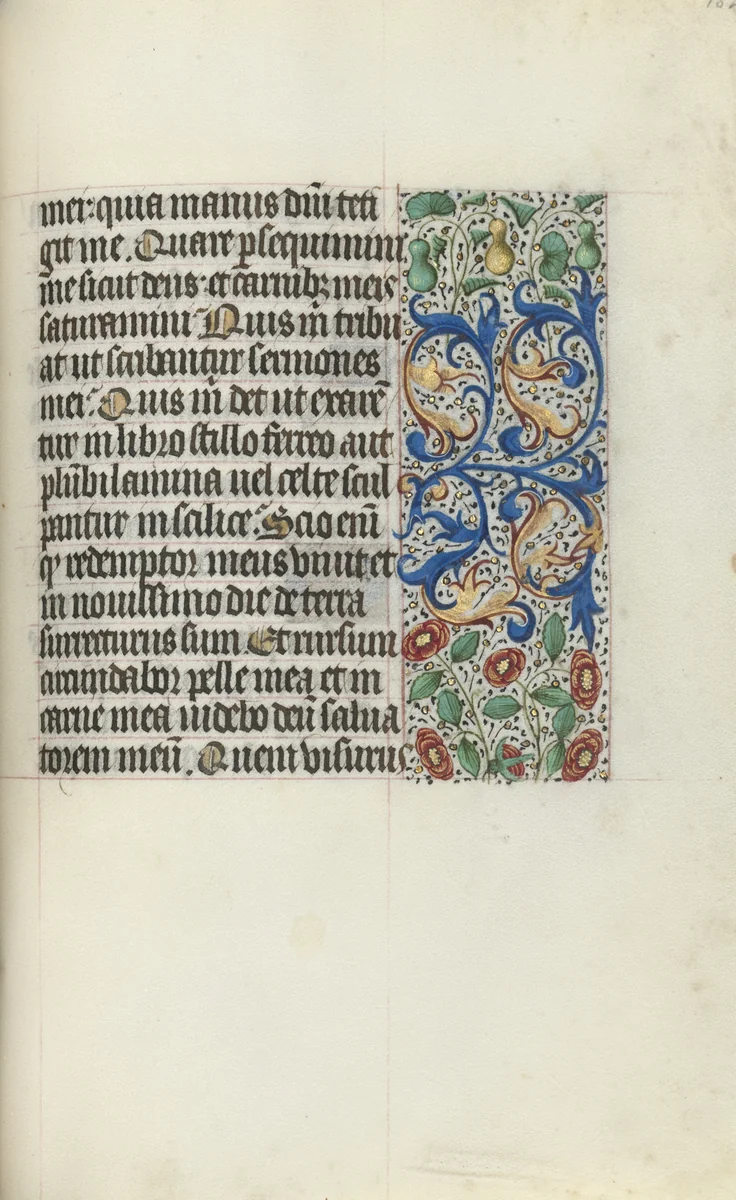 mei: quia manus dñi teti
git me. Quare ꝑsequimini
me sicut deus: et carnibꝫ meis
saturamini Quis m̃ tribu
at ut scribantur sermones
mei: Quis m̃ det ut exarẽ
tur in libro stillo ferreo aut
plũbi lamina uel celte scul
pantur in scilice: Scio enĩ
qꝫ redemptor meus viuit et
in nouissimo die de terra
surrecturus sum Et rursum
circundabor pelle mea et in
carne mea uidebo deũ salua
torem meũ. Quem visurus